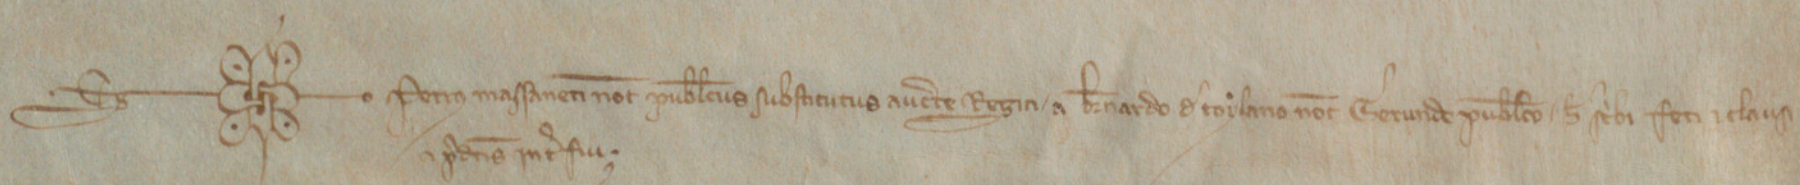 Sig o Petrus massaneti not publicus substitutus aucte Regia a bernardo de toylano not Gerunde publico h scribi feci et clausi
et predictis interfui.